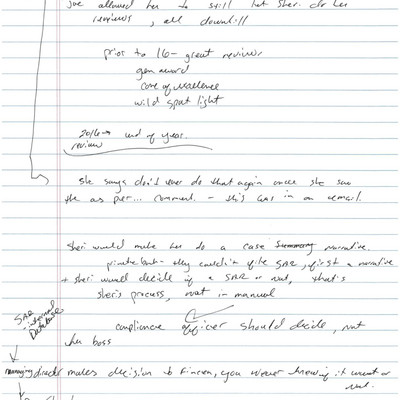 Joe allowed her to still let Sheri do her
reviews, all downhill
prior to 16 - great reviews
gem award
core of excellence
wild spot light
2016 → end of year
review
she says don't ever do that again once she saw
the as per... comment. - this was in an email.
Sheri would make her do a case summary narrative.
private bank - they couldn't file SAR, first a narrative
+ sheri would decide if a SAR or not, that's
sheri's process, not in manual
SAR
internal
Database
compliance officer should decide, not
her boss
managing director makes decision to Fincen, you never knowing it went or
not.